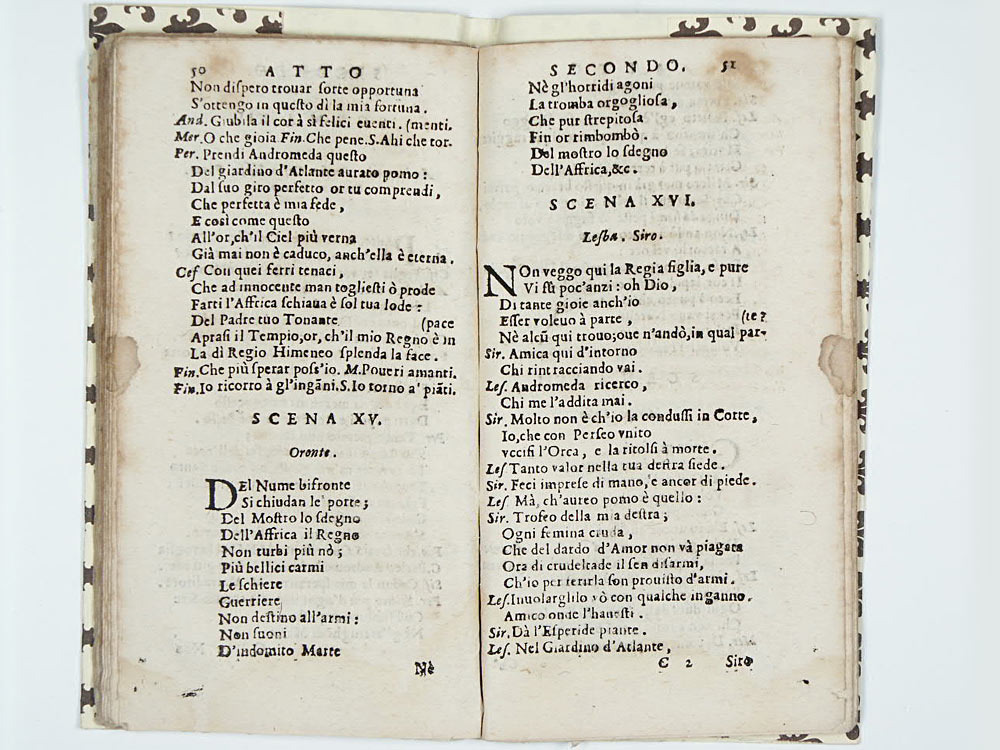 50 ATTO
Non dispero trouar sorte opportuna
S'ottengo in questo dì la mia fortuna.
And. Giubila il cor à sì felici euenti. (menti.
Mer. O che gioia Fin. Che pene. S. Ahi che tor.
Per. Prendi Andromeda questo
Del giardino d'Atlante aurato pomo:
Dal suo giro perfetto or tu comprendi,
Che perfetta è mia fede,
E così come questo
All'or, ch'il Ciel più verna
Già mai non è caduco, anch'ella è eterna.
Cef Con quei ferri tenaci,
Che ad innocente man togliesti ò prode
Farti l'Affrica schiaua è sol tua lode:
Del Padre tuo Tonante (pace
Aprasi il Tempio, or, ch'il mio Regno è in
La di Regio Himeneo splenda la face.
Fin. Che più sperar poss'io. M. Poueri amanti.
Fin. Io ricorro à gl'ingāni. S. Io torno a' piāti.
SCENA XV.
Oronte.
DEl Nume bifronte
Si chiudan le porte;
Del Mostro lo sdegno
Dell'Affrica il Regno
Non turbi più nò;
Più bellici carmi
Le schiere
Guerriere
Non destino all'armi:
Non suoni
D'indomito Marte
Nè
SECONDO. 51
Nè gl'horridi agoni
La tromba orgogliosa,
Che pur strepitosa
Fin or rimbombò.
Del mostro lo sdegno
Dell'Affrica, &c.
SCENA XVI.
Lesba. Siro.
NOn veggo qui la Regia figlia, e pure
Vi fù poc'anzi: oh Dio,
Di tante gioie anch'io
Esser voleuo à parte, (te?
Nè alcū qui trouo; oue n'andò, in qual par-
Sir. Amica qui d'intorno
Chi rintracciando vai.
Les. Andromeda ricerco,
Chi me l'addita mai.
Sir. Molto non è ch'io la condussi in Corte,
Io, che con Perseo vnito
vccisi l'Orca, e la ritolsi à morte.
Les Tanto valor nella tua destra siede.
Sir. Feci imprese di mano, e ancor di piede.
Les Mà, ch'aureo pomo è quello:
Sir. Trofeo della mia destra;
Ogni femina cruda,
Che del dardo d'Amor non và piagata
Ora di crudeltade il sen disarmi,
Ch'io per ferirla son prouisto d'armi.
Les. Inuolarglilo vò con qualche inganno.
Amico onde l'hauesti.
Sir. Dà l'Esperide piante.
Les. Nel Giardino d'Atlante,
C 2 Siro